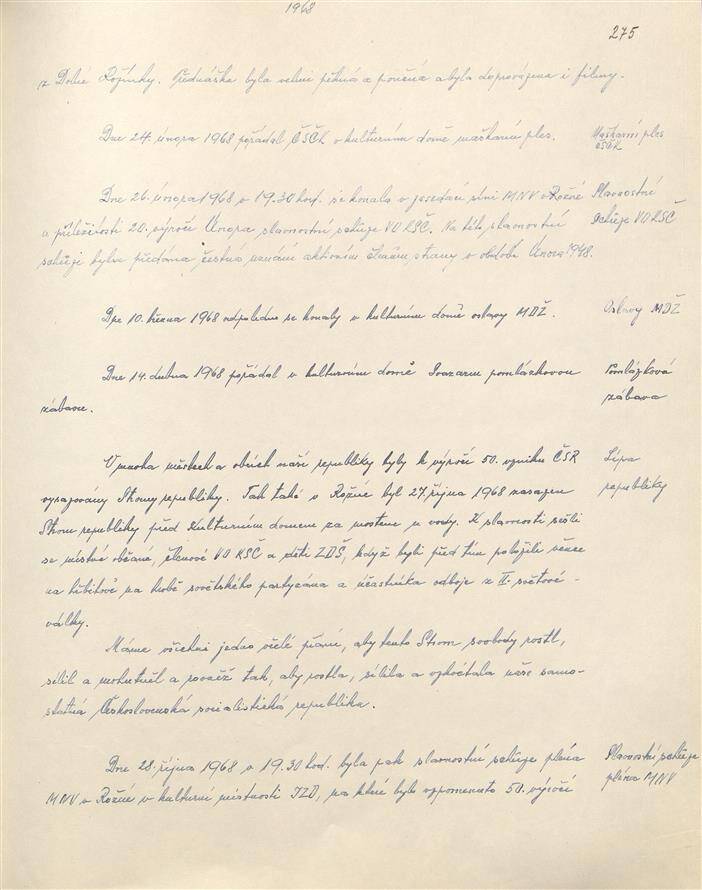 1968
275
z Dolné Rožínky. Přednáška byla velmi pěkná a poučná a byla doprovázena i filmy.
Dne 24. února 1968 pořádal ČSČK v kulturním domě maškarní ples.
Maškarní ples
ČSČK
Dne 26. února 1968 v 19.30 hod. se konala v zasedací síni MNV v Rožné
Slavnostní
u příležitosti 20. výročí Února slavnostní schůze VO KSČ. Na této slavnostní
schůze VO KSČ
schůzi bylo předána čestná uznání aktivním členům strany v období Února 1948.
Dne 10. března 1968 odpoledne se konaly v kulturním domě oslavy MDŽ.
Oslavy MDŽ
Dne 14. dubna 1968 pořádal v kulturním domě Svazarm pomlázkovou
Pomlázková
zábavu.
zábava
V mnoha městech a obcích naší republiky byly k výročí 50. vzniku ČSR
Lípa
vysazovány Stromy republiky. Tak také v Rožné byl 27. října 1968 zasazen
republiky
Strom republiky před Kulturním domem za mostem u vody. K slavnosti sešli
se místní občané, členové VO KSČ a děti ZDŠ, když byli před tím položili věnce
na hřbitově na hrobě sovětského partyzána a účastníka odboje z II. světové
války.
Máme všichni jedno vřelé přání, aby tento Strom svobody rostl,
sílil a mohutněl a rovněž tak, aby rostla, sílila a vzkvétala naše samo-
statná Československá socialistická republika.
Dne 28. října 1968 v 19.30 hod. byla pak slavnostní schůze pléna
Slavnostní schůze
MNV v Rožné v kulturní místnosti JZD, na které bylo vzpomenuto 50. výročí
pléna MNV